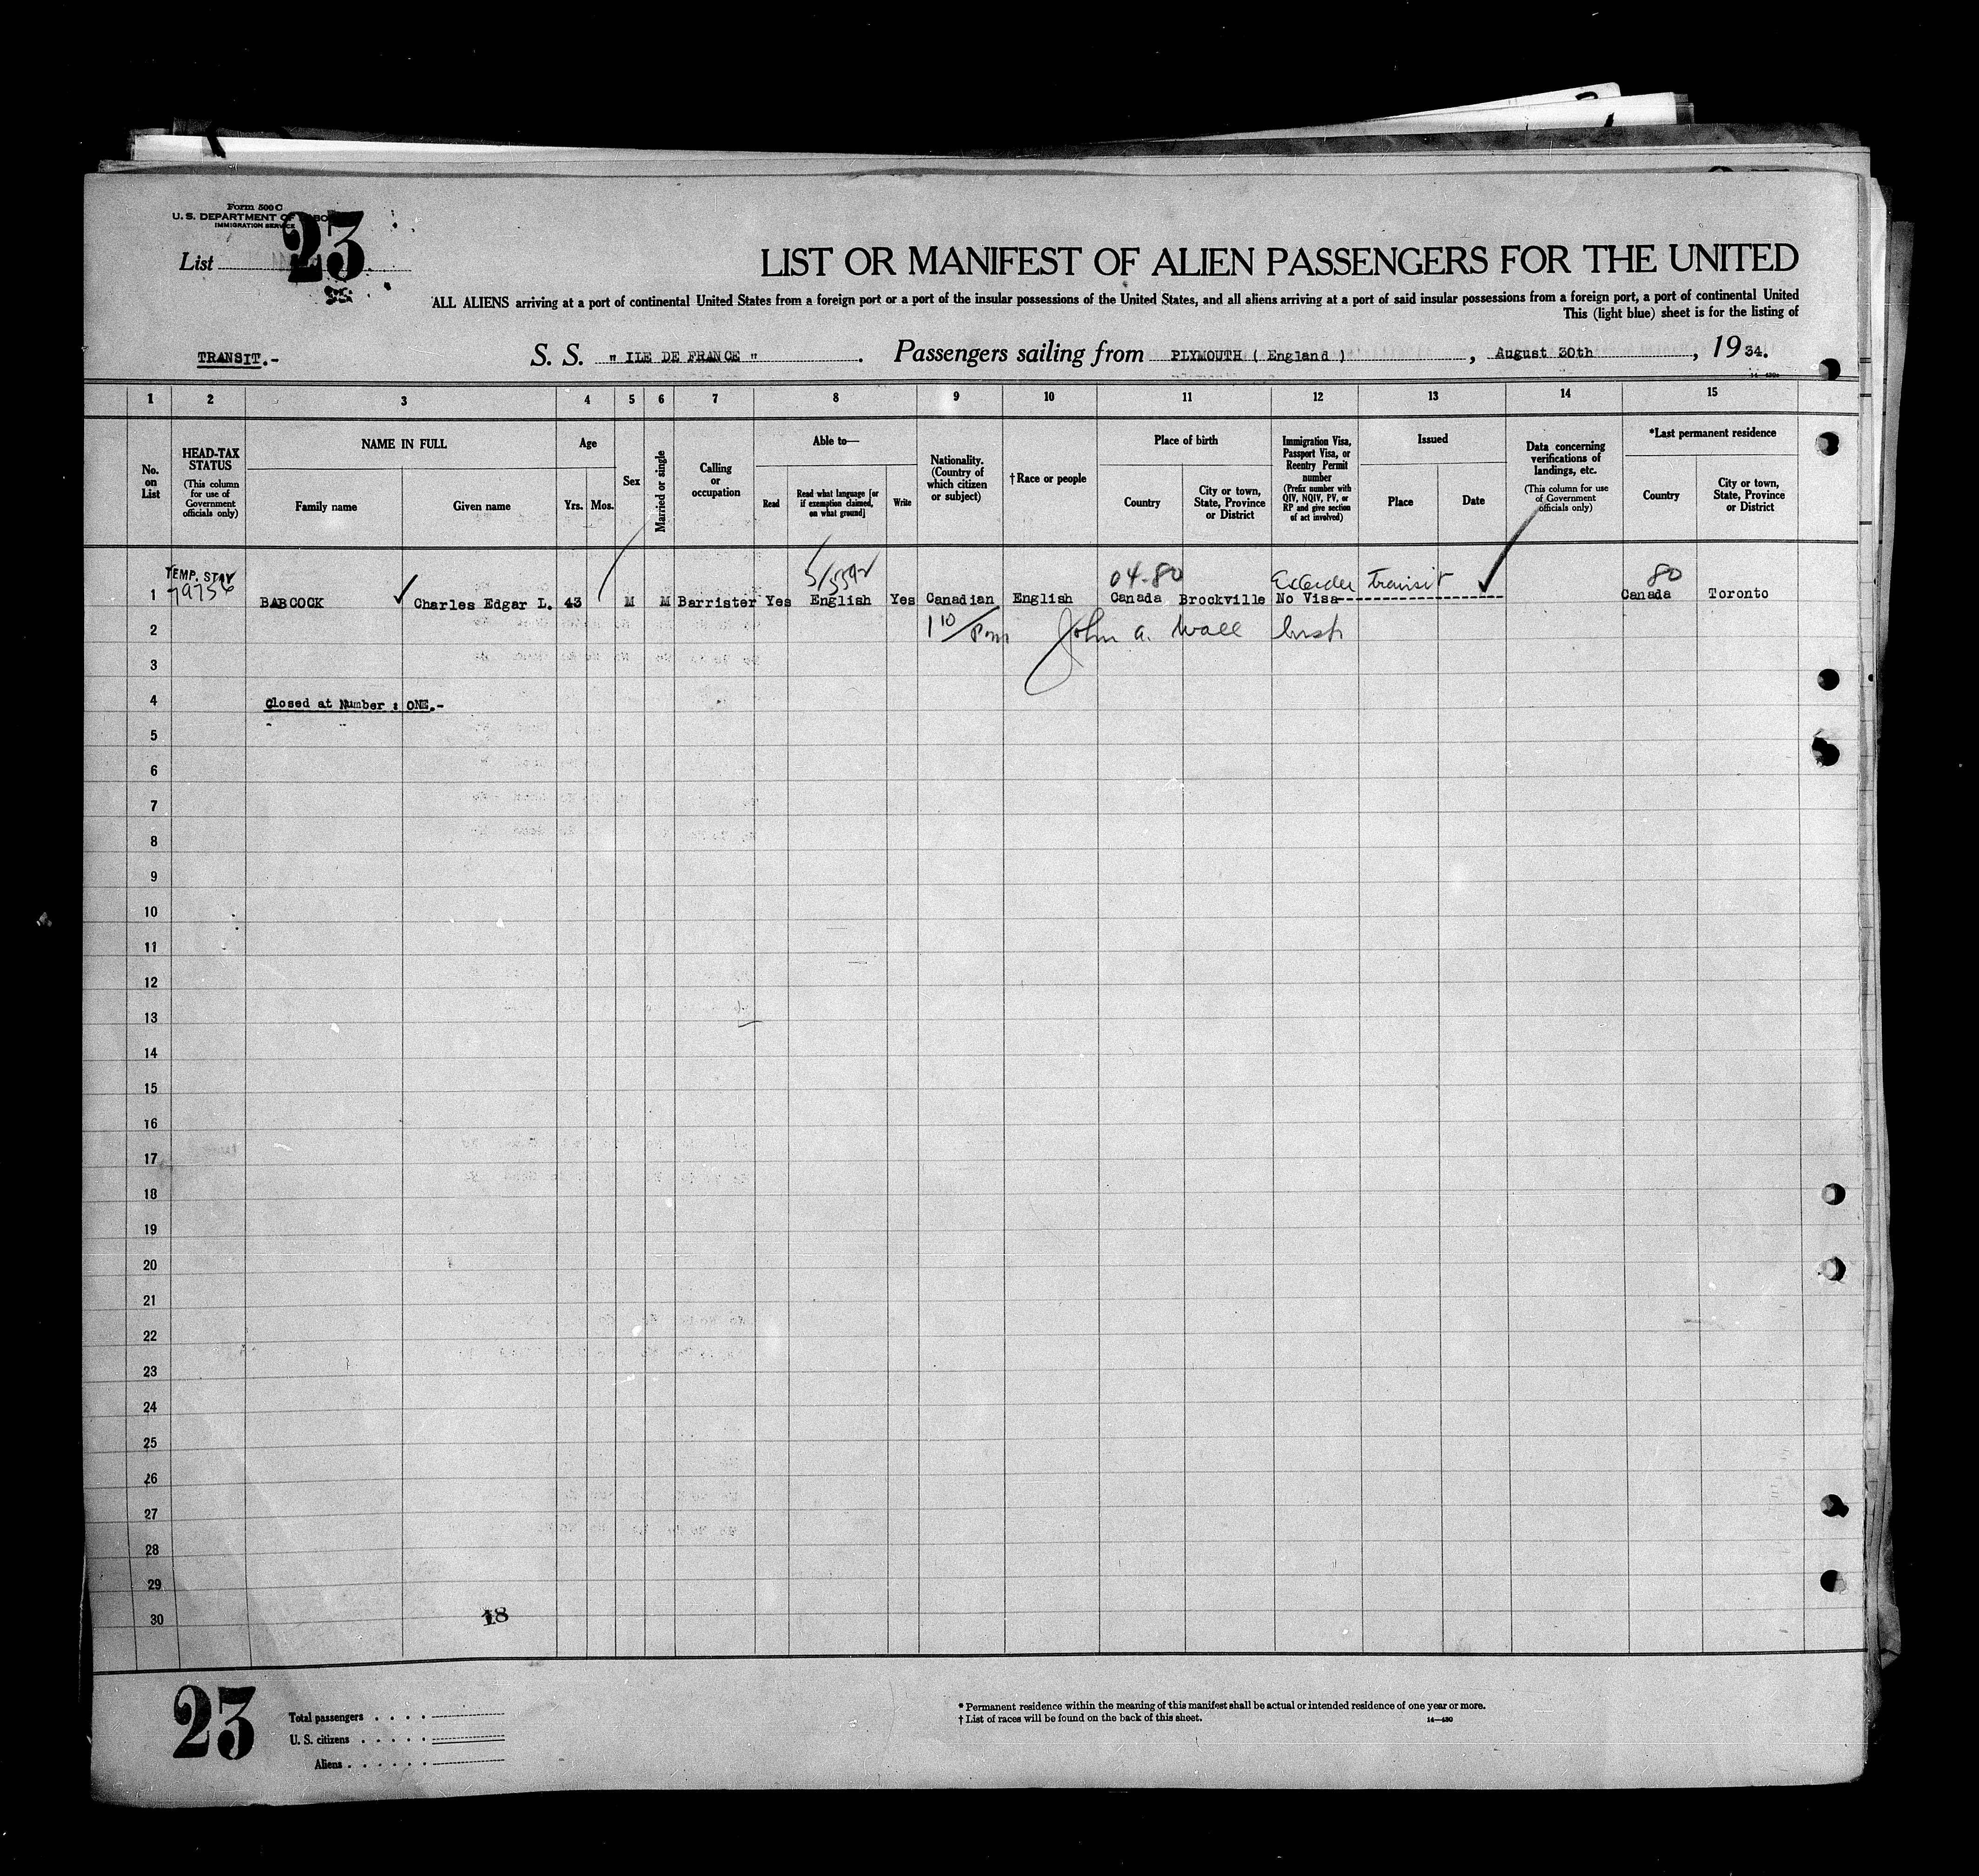 Form 500 C
U. S. DEPARTMENT OF LABOR
IMMIGRATION SERVICE
List 23
LIST OR MANIFEST OF ALIEN PASSENGERS FOR THE UNITED
ALL ALIENS arriving at a port of continental United States from a foreign port or a port of the insular possessions of the United States, and all aliens arriving at a port of said insular possessions from a foreign port, a port of continental United
This (light blue) sheet is for the listing of
TRANSIT.- S. S. " ILE DE FRANCE ". Passengers sailing from PLYMOUTH ( England ), August 30th, 1934.
1 2 3 4 5 6 7 8 9 10 11 12 13 14 15
No. on List
HEAD-TAX STATUS (This column for use of Government officials only)
NAME IN FULL Family name Given name
Age Yrs. Mos.
Sex
Married or single
Calling or occupation
Able to— Read Read what language [or if exemption claimed, on what ground] Write
Nationality. (Country of which citizen or subject)
†Race or people
Place of birth Country City or town, State, Province or District
Immigration Visa, Passport Visa, or Reentry Permit number (Prefix number with QIV, NQIV, PV, or RP and give section of act involved)
Issued Place Date
Data concerning verifications of landings, etc. (This column for use of Government officials only)
*Last permanent residence Country City or town, State, Province or District
TEMP. STAY 04-80 Transit 80
1 BABCOCK Charles Edgar L. 43 M M Barrister Yes English Yes Canadian English Canada Brockville No Visa Canada Toronto
2 John A. Wall Insp
3
4 Closed at Number : ONE.-
5
6
7
8
9
10
11
12
13
14
15
16
17
18
19
20
21
22
23
24
25
26
27
28
29
30
18
23
Total passengers
U. S. citizens
Aliens
* Permanent residence within the meaning of this manifest shall be actual or intended residence of one year or more.
† List of races will be found on the back of this sheet. 14—430